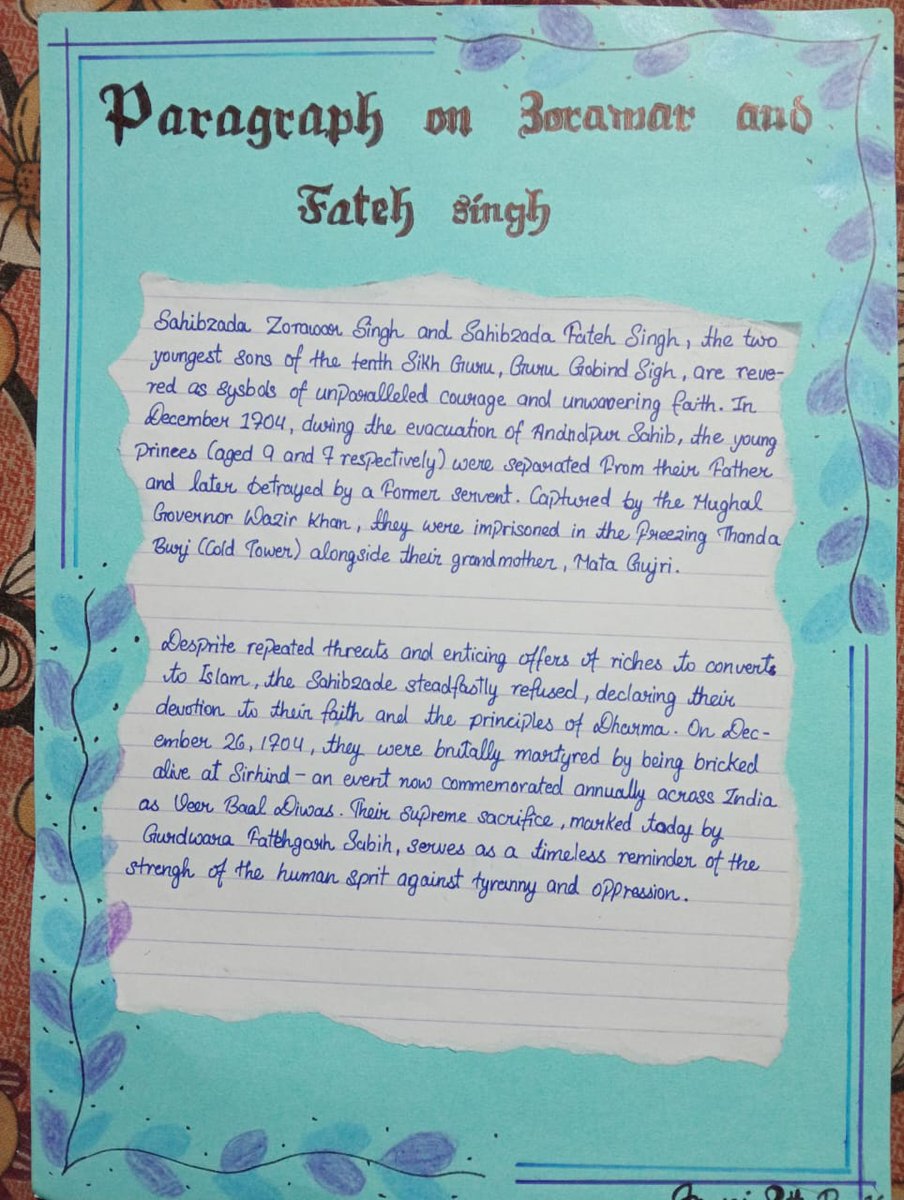 Paragraph on Zorawar and
Fateh singh
Sahibzada Zorawar Singh and Sahibzada Fateh Singh, the two
youngest sons of the tenth Sikh Guru, Guru Gobind Sigh, are reve-
red as sysbols of unparalleled courage and unwavering faith. In
December 1704, during the evacuation of Andndpur Sahib, the young
princes (aged 9 and 7 respectively) were separated from their Father
and later betrayed by a former servent. Captured by the Mughal
Governor Wazir Khan, they were imprisoned in the freezing Thanda
Burj (Cold Tower) alongside their grandmother, Mata Gujri.
Desprite repeated threats and enticing offers of riches to converts
to Islam, the Sahibzade steadfastly refused, declaring their
devotion to their faith and the principles of Dharma. On Dec-
ember 26, 1704, they were brutally martyred by being bricked
alive at Sirhind - an event now commemorated annually across India
as Veer Baal Diwas. Their supreme sacrifice, marked today by
Gurdwara Fatehgarh Sabih, serves as a timeless reminder of the
strengh of the human sprit against tyranny and oppression.